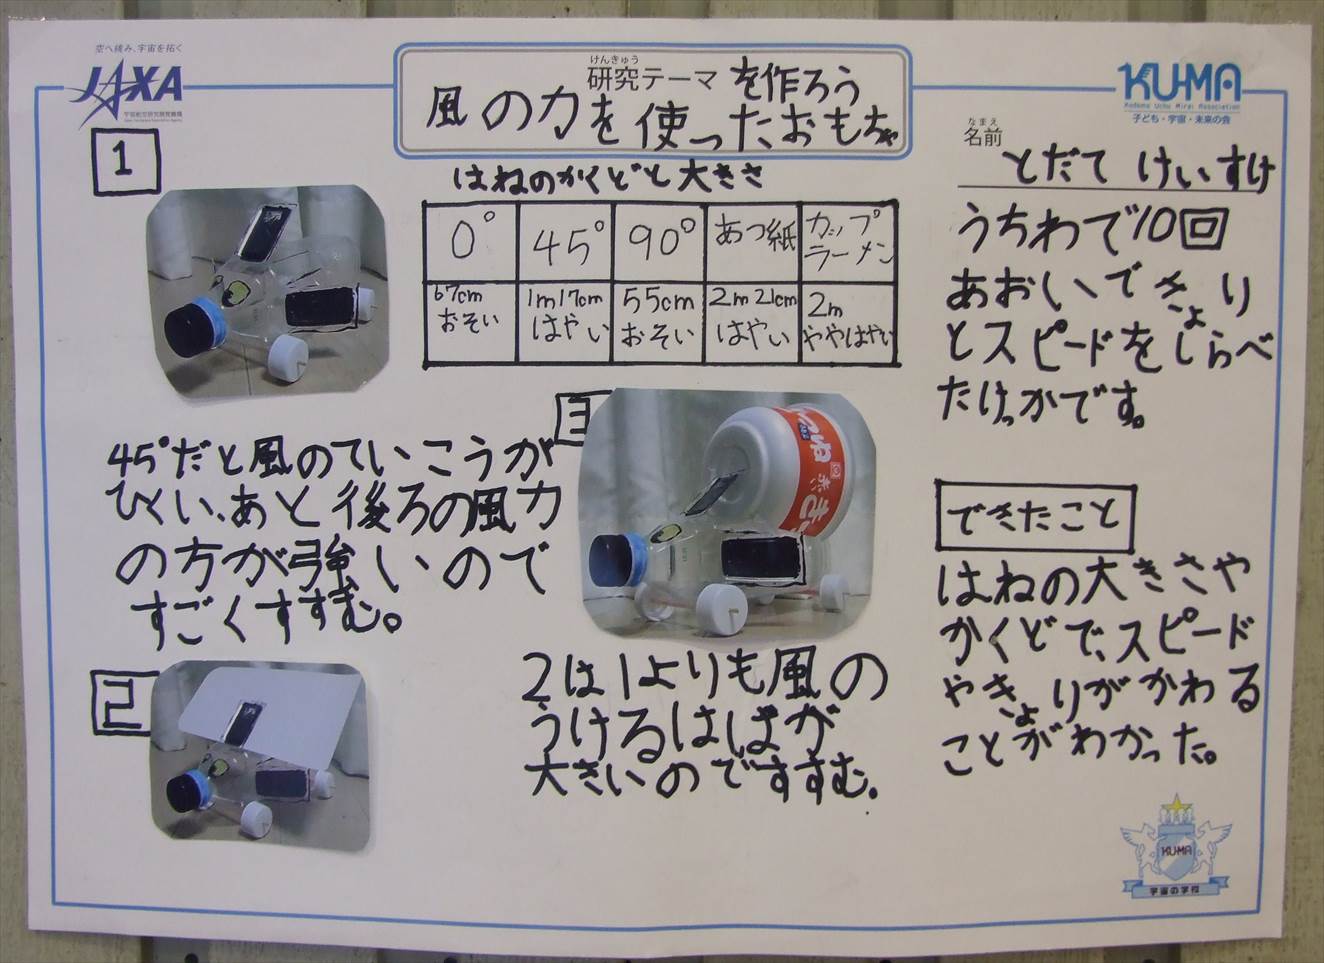 空へ挑み、宇宙を拓く
JAXA
宇宙航空研究開発機構
Japan Aerospace Exploration Agency
けんきゅう
研究テーマ を作ろう
風の力を使ったおもちゃ
KU-MA
Kodomo Uchu Mirai Association
子ども・宇宙・未来の会
なまえ
名前
とだて けいすけ
1
はねのかくどと大きさ
0° 45° 90° あつ紙 カップラーメン
67cm 1m17cm 55cm 2m21cm 2m
おそい はやい おそい はやい ややはやい
うちわで10回
あおいできょり
とスピードをしらべ
たけっかです。
45°だと風のていこうが
ひくい、あと後ろの風力
の方が強いので
すごくすすむ。
2
3
2は1よりも風の
うけるはばが
大きいのですすむ。
できたこと
はねの大きさや
かくどで、スピード
やきょりがかわる
ことがわかった。
KU-MA
宇宙の学校